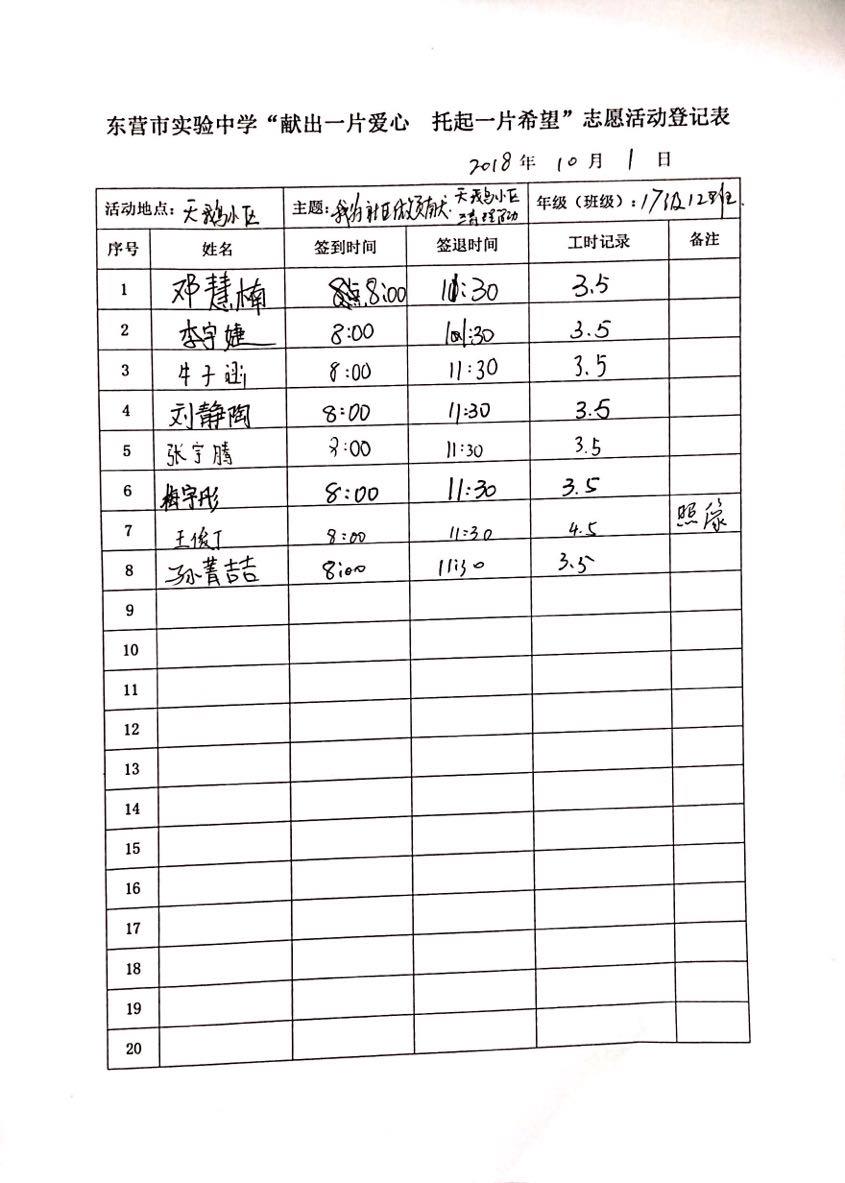 东营市实验中学“献出一片爱心 托起一片希望”志愿活动登记表
2018年 10月 1日
活动地点：天鹅小区 主题：我为社区做贡献 天鹅小区清理活动 年级（班级）：17级12班.
序号 姓名 签到时间 签退时间 工时记录 备注
1 邓慧楠 8:00 11:30 3.5
2 李宇婕 8:00 11:30 3.5
3 牛子涵 8:00 11:30 3.5
4 刘静陶 8:00 11:30 3.5
5 张宇腾 8:00 11:30 3.5
6 梅宇彤 8:00 11:30 3.5
7 王俊丁 8:00 11:30 4.5 照像
8 孙菁喆 8:00 11:30 3.5
9
10
11
12
13
14
15
16
17
18
19
20